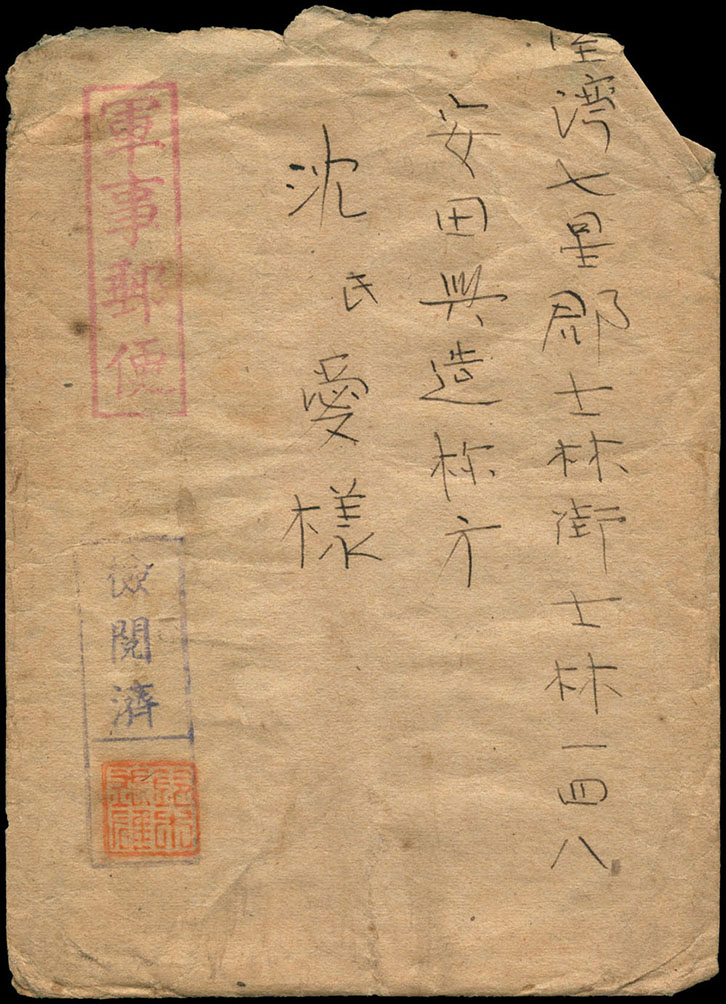 臺湾七星郡士林街士林一四八
安田興造様方
沈氏愛様
軍事郵便
檢閲濟